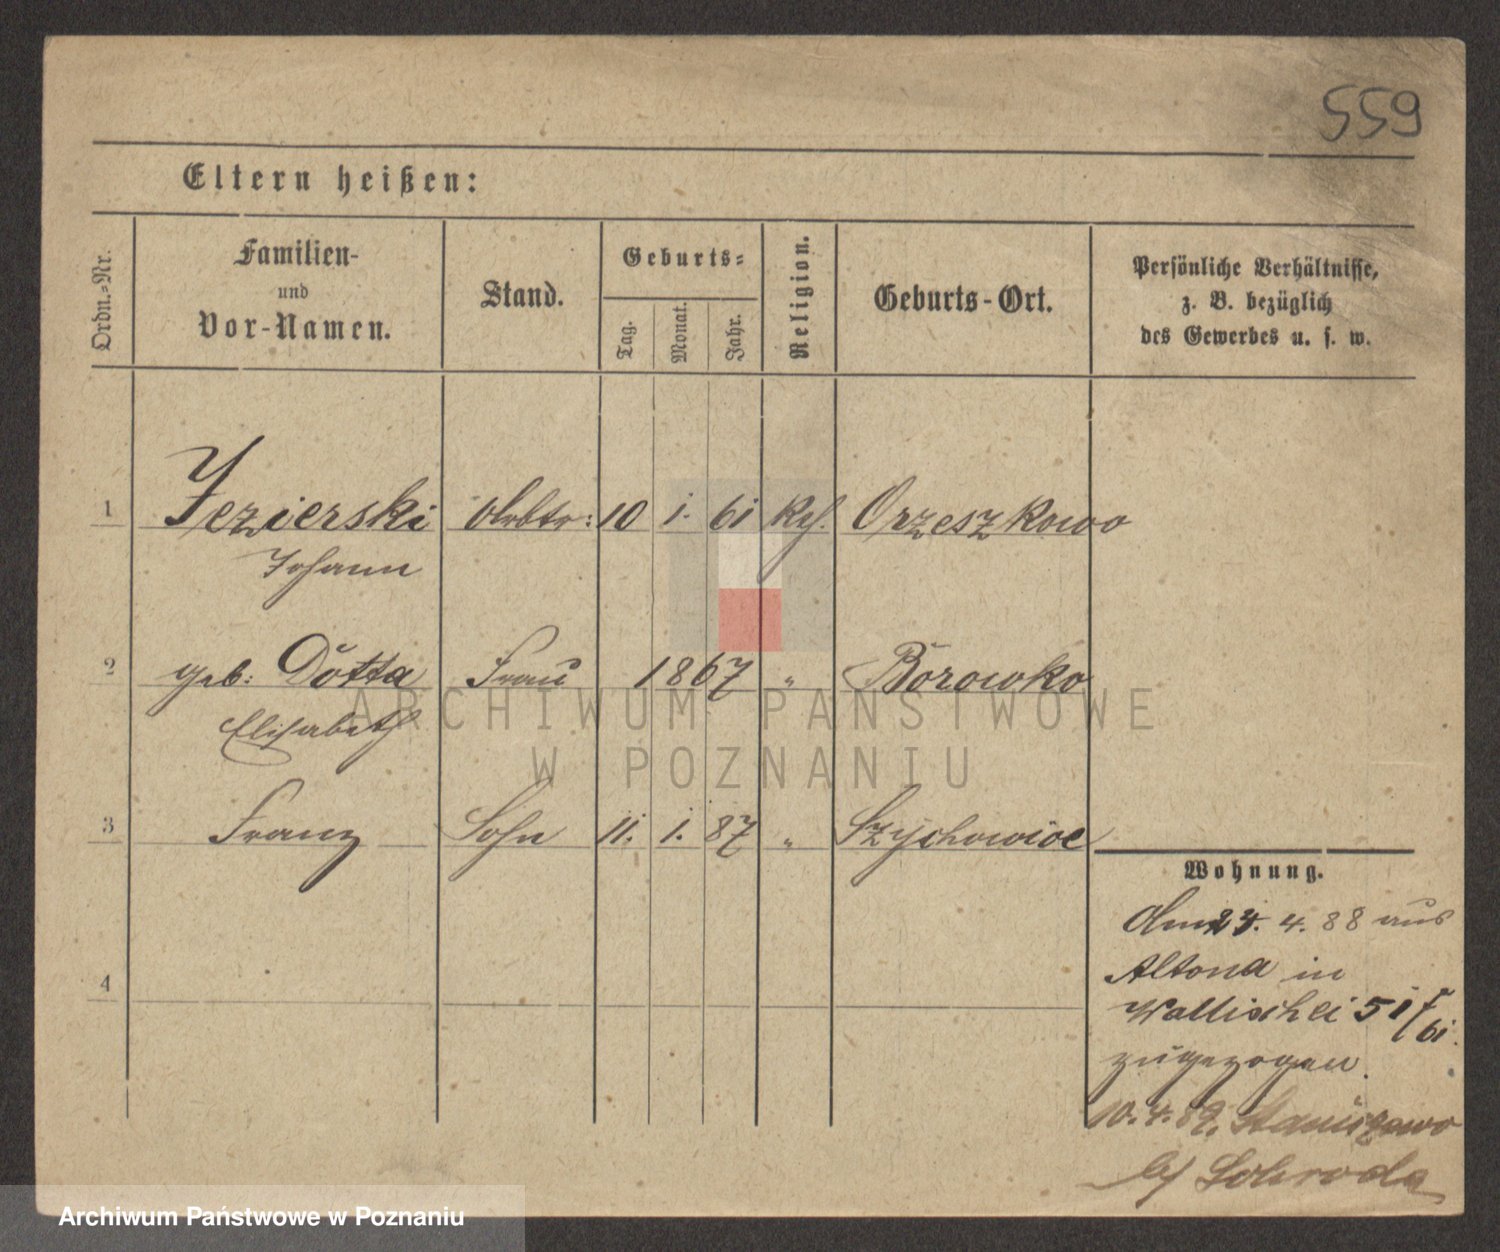 559
Eltern heißen:
Ordn.-Nr.
Familien-
und
Vor-Namen.
Stand.
Geburts-
Tag.
Monat.
Jahr.
Religion.
Geburts-Ort.
Persönliche Verhältnisse,
z. B. bezüglich
des Gewerbes u. s. w.
1 Jezierski Arbtr: 10 1. 61 Kth. Orzeszkowo
Johann
2 geb: Dotta Frau 1867 " Borowko
Elisabeth
3 Franz Sohn 11. 1. 87 "
4
Wohnung.
Am 4. 88 aus
Altona in
Wallischei 51/61
zugezogen.
10. 4. 89.
b/ Schroda
ARCHIWUM PAŃSTWOWE
W POZNANIU
Archiwum Państwowe w Poznaniu